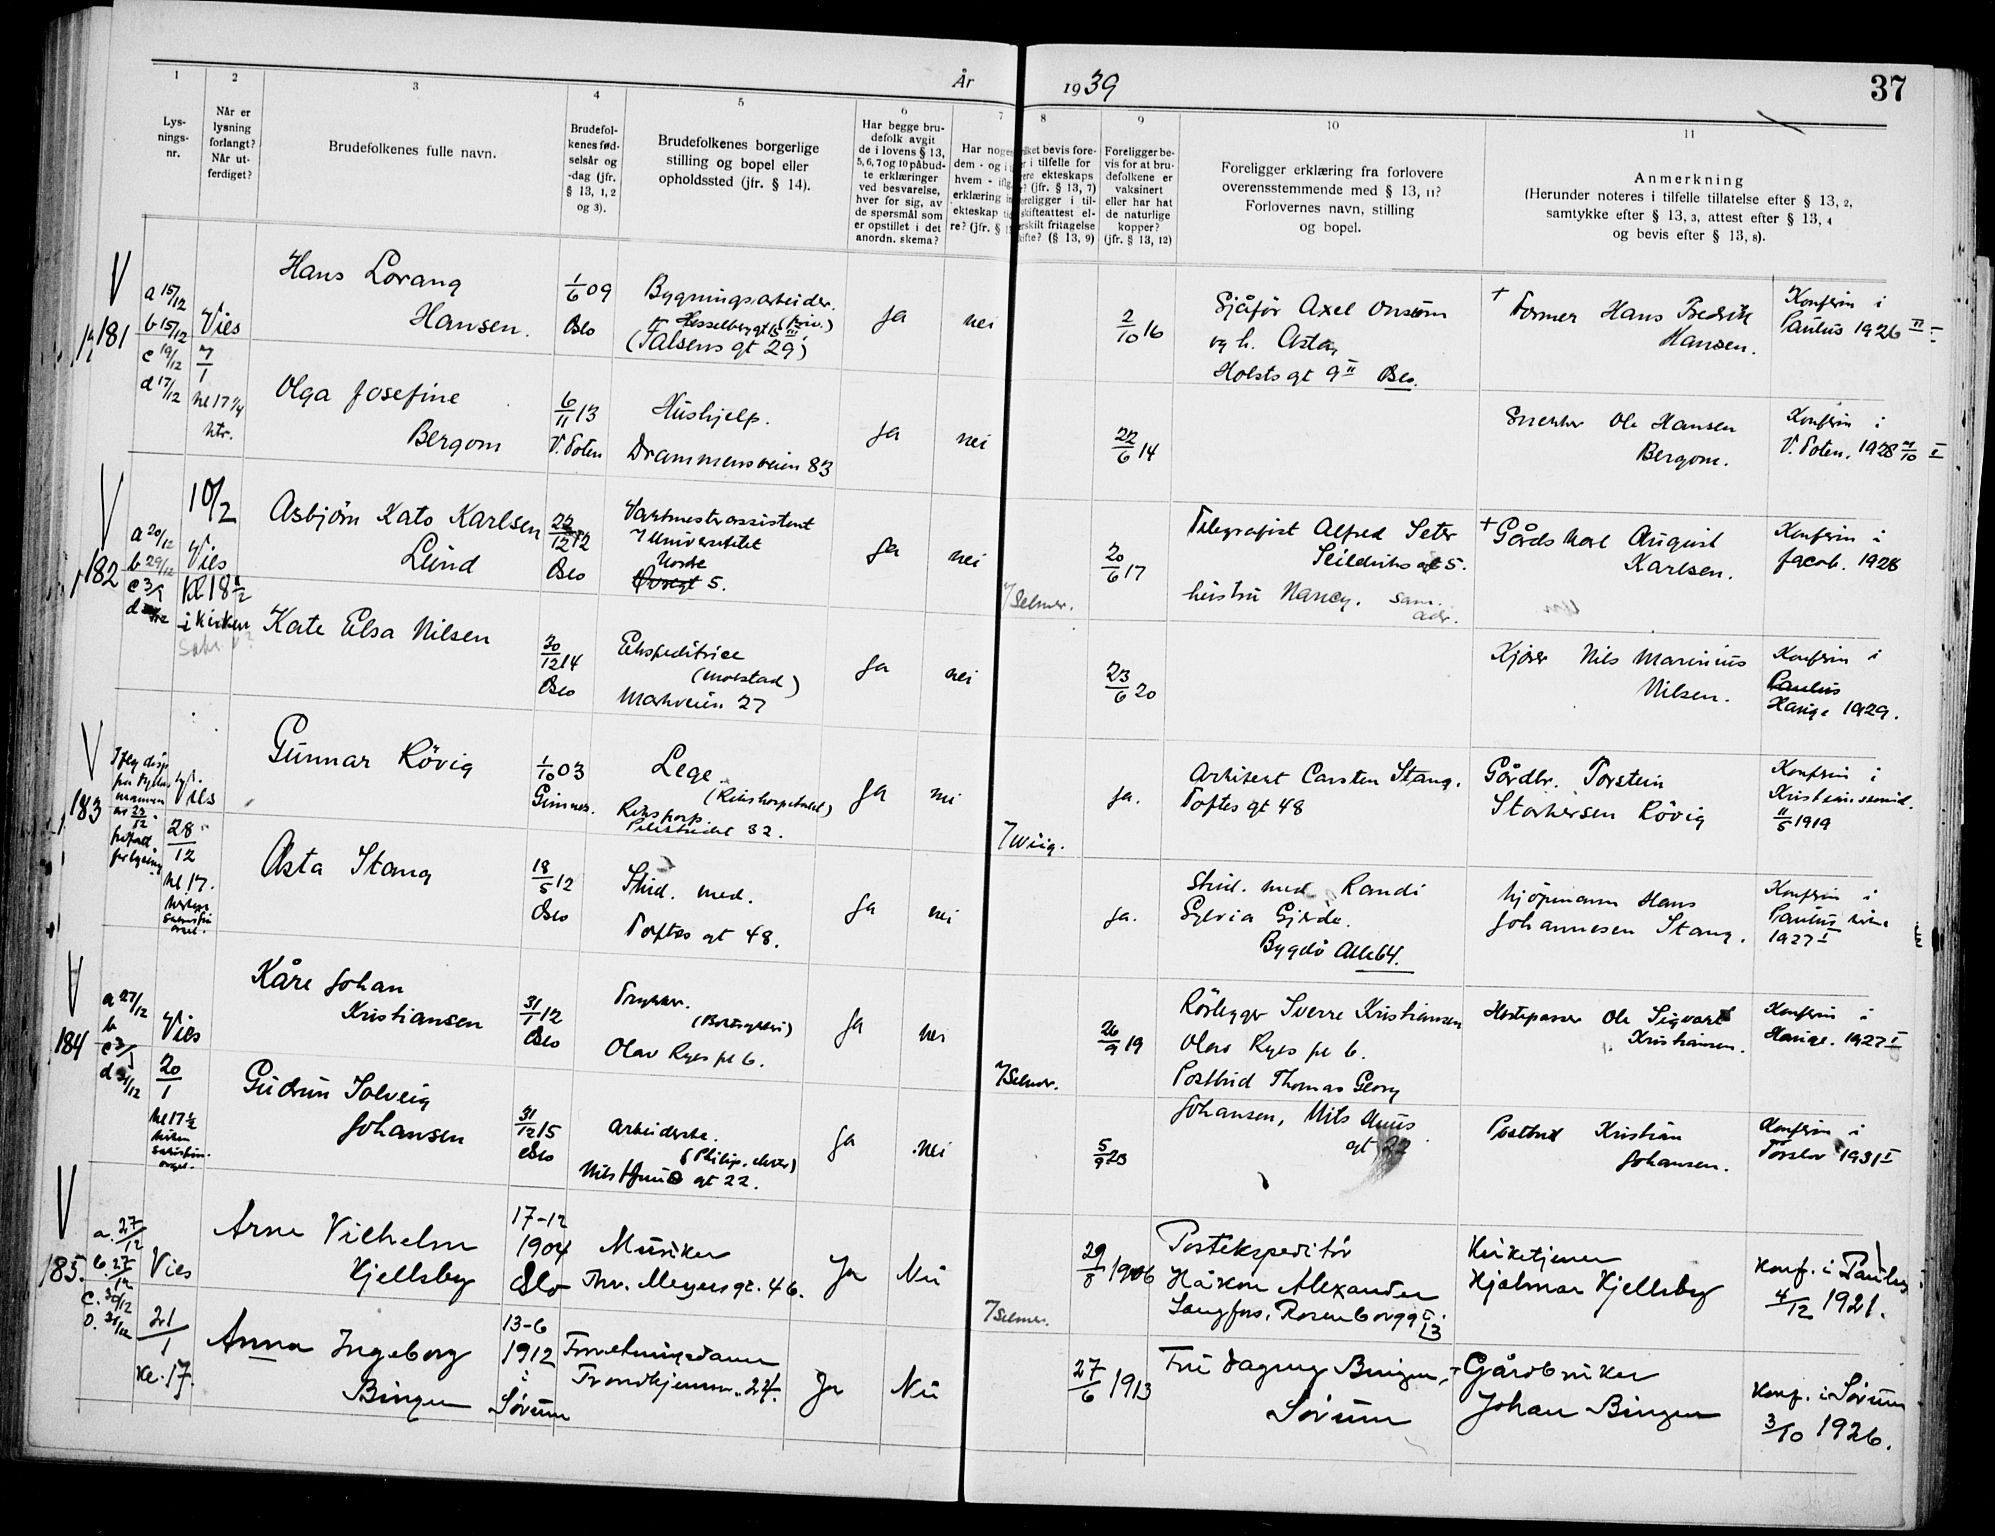 År 1939
37
1 2 3 4 5 6 7 8 9 10 11
Lys-
nings-
nr.
Når er
lysning
forlangt?
Når ut-
ferdiget?
Brudefolkenes fulle navn.
Brudefol-
kenes fød-
selsår og
-dag (jfr.
§ 13, 1, 2
og 3).
Brudefolkenes borgerlige
stilling og bopel eller
opholdssted (jfr. § 14).
Har begge bru-
defolk avgit
de i lovens § 13,
5, 6, 7 og 10 påbud-
te erklæringer
ved besvarelse,
hver for sig, av
de spørsmål som
er opstillet i det
anordn. skema?
Foreligger be-
vis for at bru-
defolkene er
vaksinert
eller har hat
de naturlige
kopper?
(jfr. § 13, 12)
Foreligger erklæring fra forlovere
overensstemmende med § 13, 11?
Forlovernes navn, stilling
og bopel.
Anmerkning
(Herunder noteres i tilfelle tillatelse efter § 13, 2,
samtykke efter § 13, 3, attest efter § 13, 4
og bevis efter § 13, 8).
181
a 15/12
b 15/12
c 19/12
d 17/12
Vies
7/1
Hans Lorang
Hansen.
1/6 09
Oslo
Bygningsarbeider.
(Falsens gt 29)
Ja
nei
2/10 16
Sjåfør Axel Onsum
og h. Asta,
Holsts gt 9 II Oslo.
+ Former Hans Fredrik
Hansen.
Konfirm i
Paulus 1926
Olga Josefine
Bergom
6/11 13
V. Toten
Hushjelp.
Drammensveien 83
Ja
nei
22/6 14
Snekker Ole Hansen
Bergom.
Konfirm i
V. Toten. 1928
182
a 20/12
b 29/12
c 3/1
10/2
Vies
Kl 18 1/2
i kirken
Asbjørn Kato Karlsen
Lund
Oslo
Vaktmesterassistent
Universitetet
5.
Ja
nei
7 Selmer.
20/6 17
Telegrafist Alfred Seter
Seilduks gt 5.
hustru Nancy. sam.
adr.
+ Gårdskarl August
Karlsen.
Konfirm i
Jacob. 1928
Kate Elsa Nilsen
30/12 14
Oslo
Ekspeditrice
(Molstad)
Markveien 27
Ja
nei
23/6 20
Kjører Nils Marinius
Nilsen.
Konfirm i
Paulus
Hauge 1929.
183
Vies
28/12
kl 17.
Gunnar Rövig
1/10 03
Lege.
(Rikshospitalet)
Rikshosp.
Pilestredet 32.
Ja
nei
7 Wiig.
ja.
Arkitekt Carsten Stang.
Toftes gt 48
Gårdbr. Torstein
Storkersen Rövig
Konfirm i
Kristiansund.
11/5 1919
Asta Stang
18/5 12
Oslo
Stud. med.
Toftes gt 48.
Ja
nei
ja.
Stud. med Randi
Sylvia Gjerde.
Bygdö Alle 64.
Kjöpmann Hans
Johannesen Stang.
Konfirm i
Paulus kirke
1927 I
184
a 27/12
b
c 3/1
d 31/12
Vies
20/1
kl 17 1/2
kirken
Kåre Johan
Kristiansen
31/1 12
Oslo
Trykker.
Olav Ryes pl 6.
Ja
nei
7 Selmer.
26/9 19
Rörlegger Sverre Kristiansen
Olav Ryes pl 6.
Postbud Thomas Georg
Johansen, Nils Huus
gt 22
Hestepasser Ole Sigvart
Kristiansen.
Konfirm i
Hauge. 1927 I
Gudrun Solveig
Johansen
31/12 15
Oslo
Arbeiderske.
Nils Huus gt 22.
Ja
nei
5/9 23
Postbud Kristian
Johansen.
Konfirm i
Torshov 1931 I
185.
a. 27/12
b. 27/12
c. 30/12
D. 31/12
Vies
21/1
Kl. 17.
Arne Vilhelm
Kjellsby
17-12
1904
Oslo
Musiker
Thv. Meyersgt. 46.
Ja
Nei
7 Selmer.
29/8 1906
Postekspeditör
Håkon Alexander
Langfors, Rosenborggt.
13
Kirketjener
Hjalmar Kjellsby
Konf. i Paulus
4/12 1921.
Anna Ingeborg
Bingen
13-6
1912
i
Sörum
Forretningsdame
Trondhjemsv. 24.
Ja
Nei
27/6 1913
Fru Dagny Bingen,
Sörum
+ Gårdbruker
Johan Bingen
Konf. i Sörum
3/10 1926.